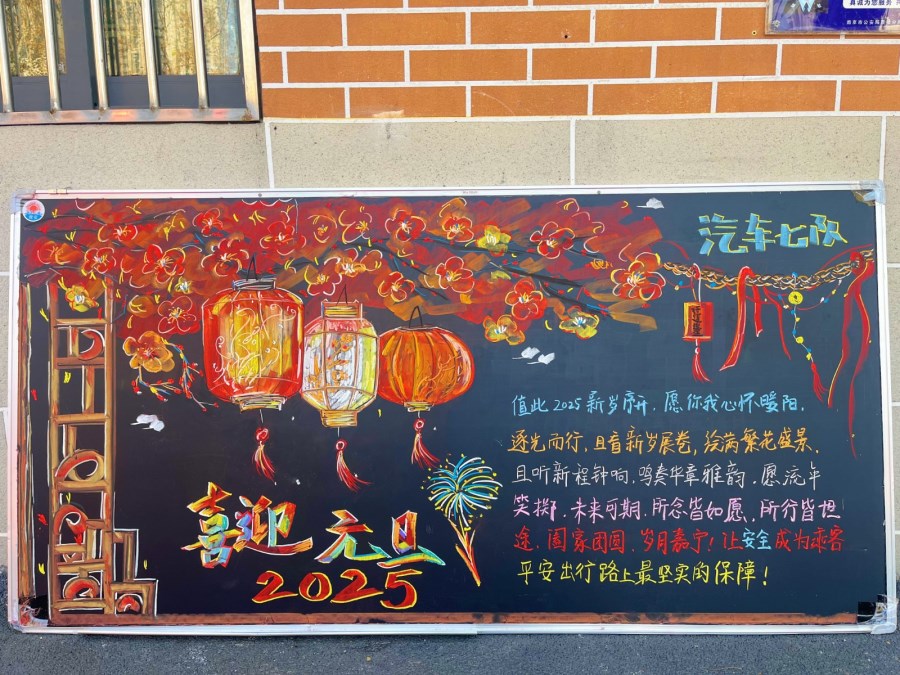 真诚为您服务
汽车七队
值此2025新岁序开,愿你我心怀暖阳,
逐光而行,且看新岁展卷,绘满繁花盛景,
且听新程钟响,鸣奏华章雅韵,愿流年
笑掷,未来可期,所念皆如愿,所行皆坦
途,阖家团圆,岁月嘉宁!让安全成为乘客
平安出行路上最坚实的保障!
喜迎元旦
2025